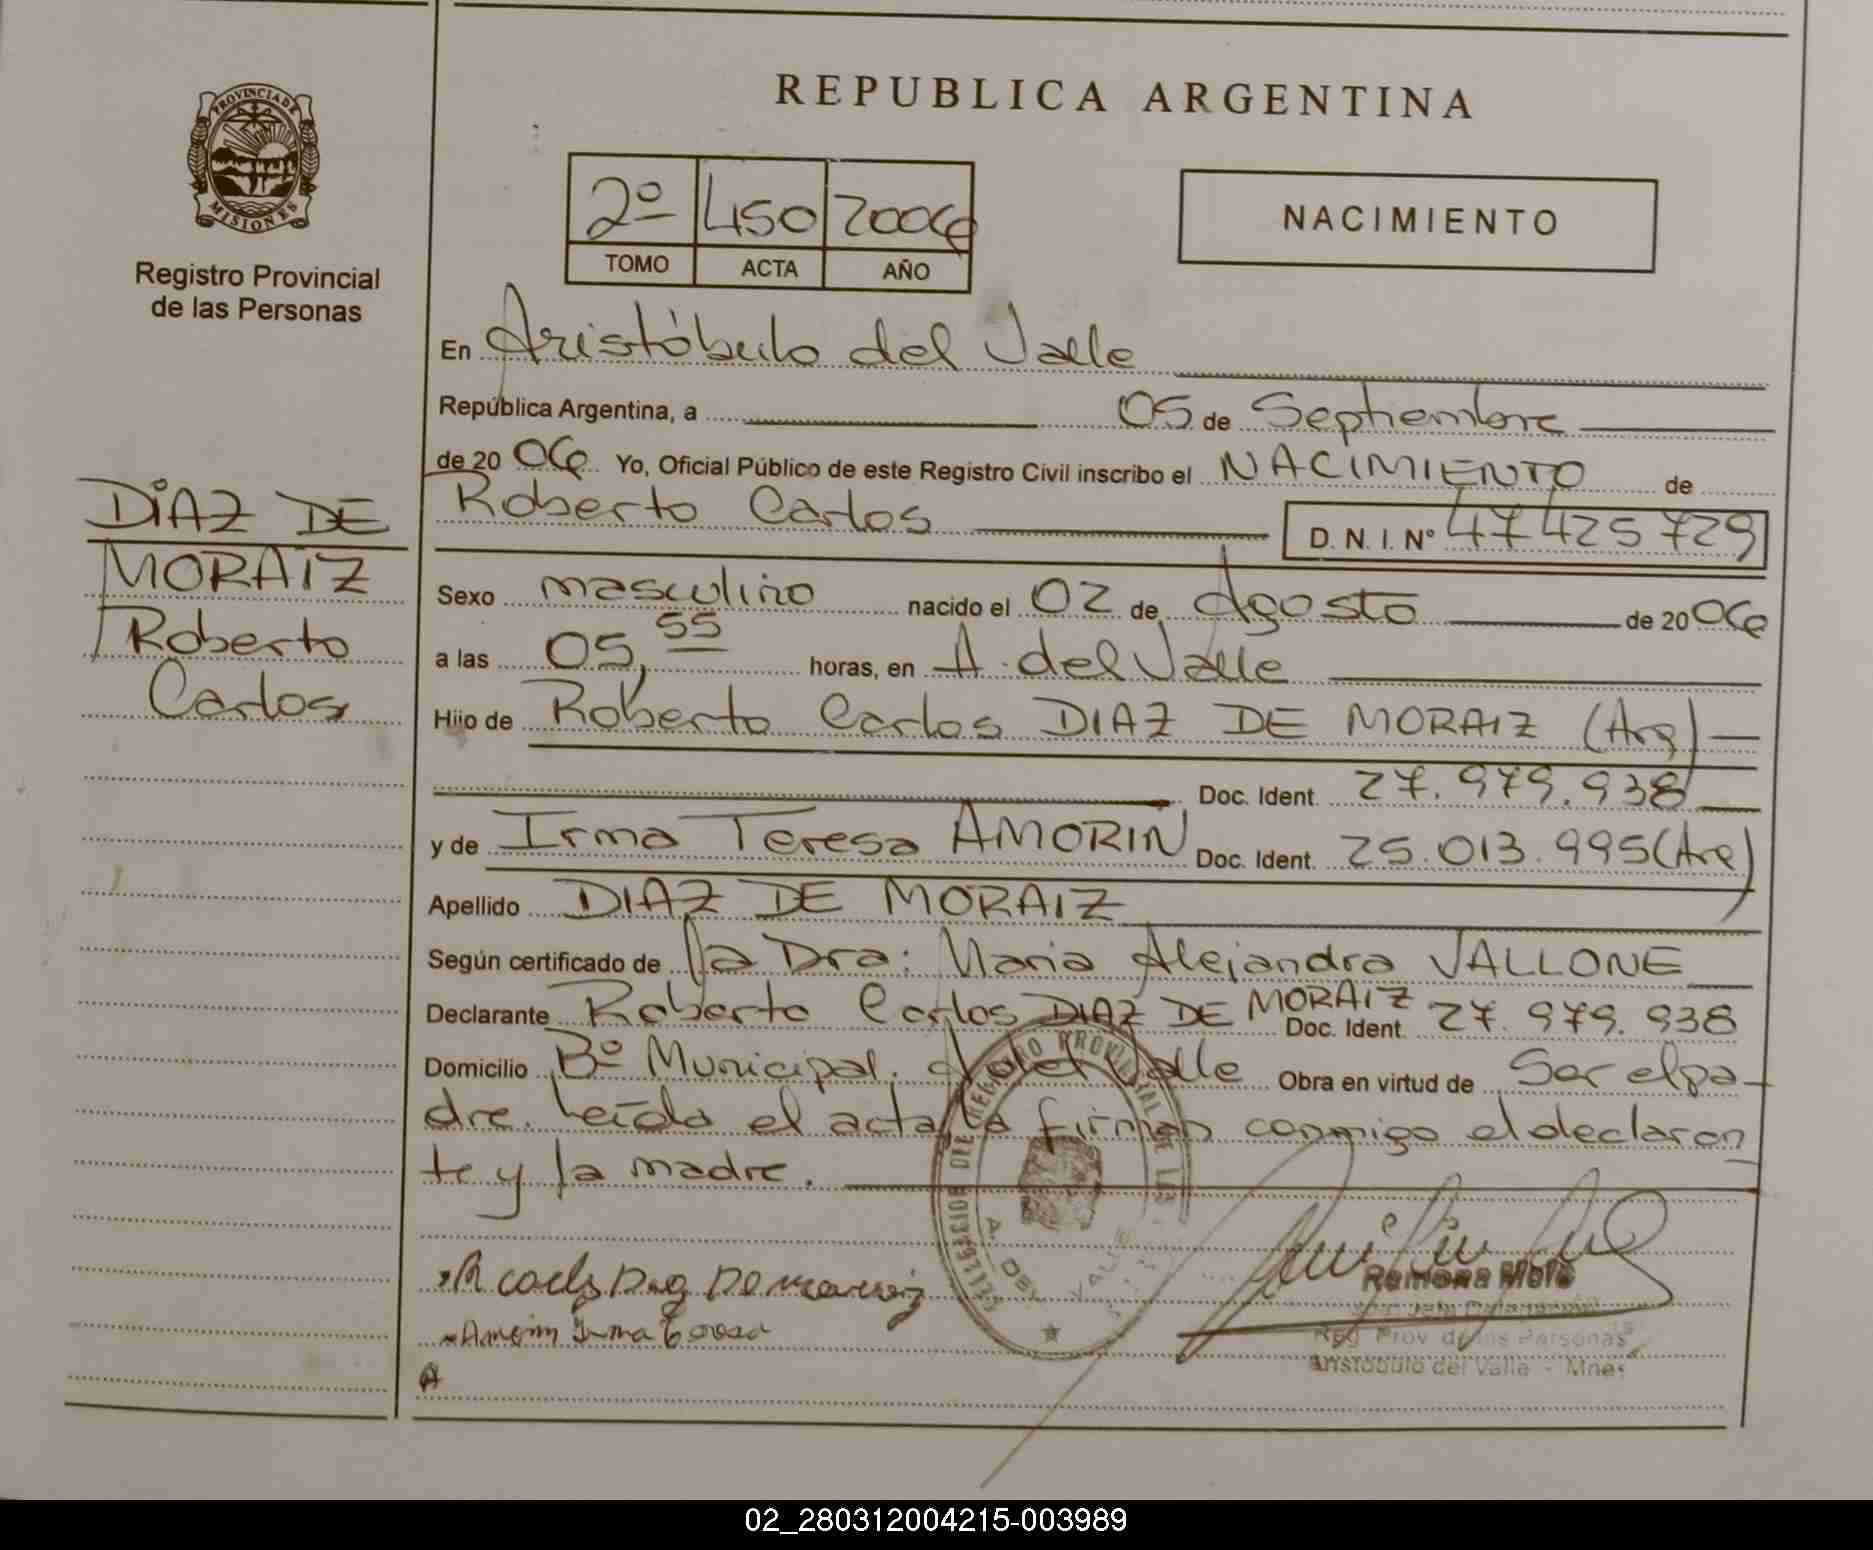 REPUBLICA ARGENTINA
PROVINCIA DE
MISIONES
Registro Provincial
de las Personas
2º 450 2006
TOMO ACTA AÑO
NACIMIENTO
En Aristóbulo del Valle
República Argentina, a 05 de Septiembre
de 20 06 Yo, Oficial Público de este Registro Civil inscribo el NACIMIENTO de
Roberto Carlos D. N. I. Nº 47425729
DIAZ DE
MORAIZ
Roberto
Carlos
Sexo masculino nacido el 02 de Agosto de 20 06
a las 05,55 horas, en A. del Valle
Hijo de Roberto Carlos DIAZ DE MORAIZ (Arg)
Doc. Ident. 27.979.938
y de Irma Teresa AMORIN Doc. Ident. 25.013.995 (Arg)
Apellido DIAZ DE MORAIZ
Según certificado de la Dra: Maria Alejandra VALLONE
Declarante Roberto Carlos DIAZ DE MORAIZ Doc. Ident. 27.979.938
Domicilio Bº Municipal. A del Valle Obra en virtud de Ser el pa-
dre. Leída el acta, la firman conmigo el declaran
te y la madre.
Amorin Irma Teresa
Ramona Melo
Reg. Prov. de las Personas
Aristobulo del Valle - Mnes
02_280312004215-003989